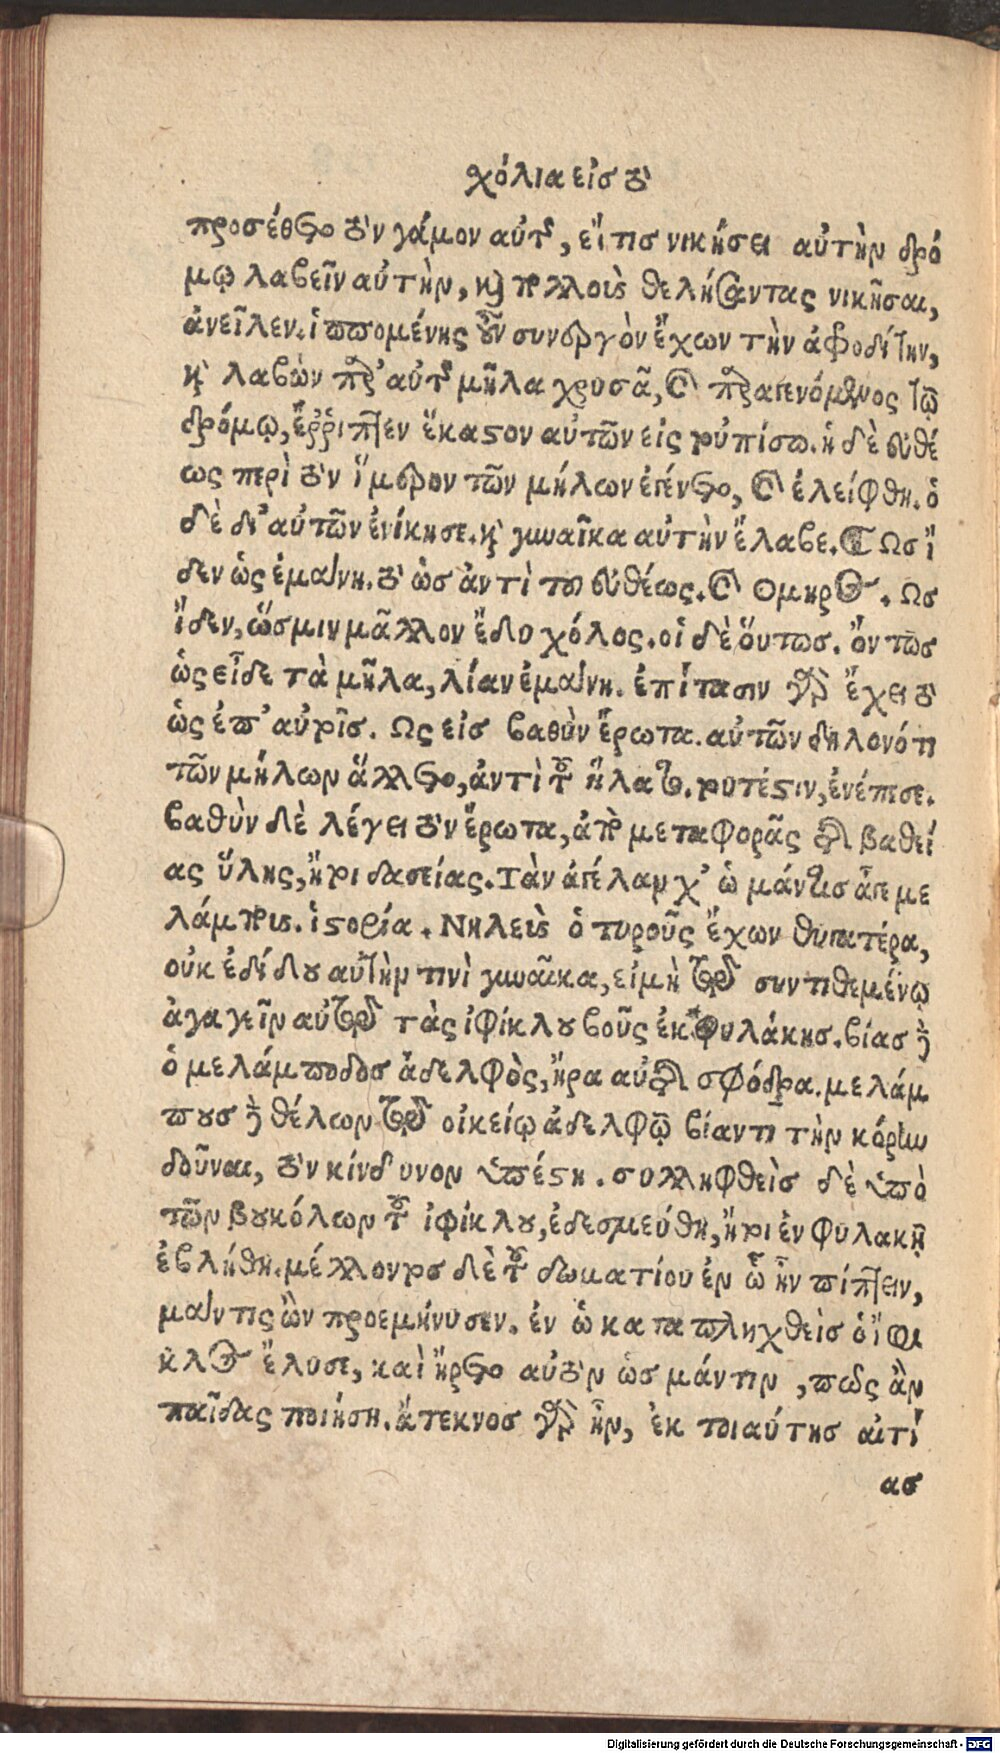 χόλια εἰσ τὸ
προσέθετο τὸν γάμον αὐτῆς, εἴ τισ νικήσει αὐτὴν δρό
μῳ λαβεῖν αὐτὴν, καὶ πολλοὺς θελήσαντας νικῆσαι,
ἀνεῖλεν. ἱππομένης οὖν συνεργὸν ἔχων τὴν ἀφροδίτην,
καὶ λαβὼν παρ' αὐτῆς μῆλα χρυσᾶ, καὶ παραγενόμενος τῷ
δρόμῳ, ἔῤῥιπτεν ἕκαστον αὐτῶν εἰς τὐπίσω. ἡ δὲ εὐθέ
ως περὶ τὸν ἵμερον τῶν μήλων ἐγένετο, καὶ ἐλείφθη. ὁ
δὲ δι' αὐτῶν ἐνίκησε. καὶ γυναῖκα αὐτὴν ἔλαβε. Ωσ ἴ
δεν ὡς ἐμαίνη. τὸ ὡσ ἀντὶ του εὐθέως. καὶ Ομηρος. Ωσ
ἴδεν, ὥσμιν μᾶλλον ἔδυ χόλος. οἱ δὲ ὅυτωσ. ὄντωσ
ὡς εἶδε τὰ μῆλα, λίαν ἐμαίνη. ἐπίτασιν γὰρ ἔχει τὸ
ὡς ἐπ' αὐτοῖσ. Ως εἰσ βαθὺν ἔρωτα. αὐτῶν δηλονότι
τῶν μήλων ἅλλετο, ἀντὶ τοῦ ἥλατο. τουτέστιν, ἐνέπεσε.
βαθὺν δὲ λέγει τὸν ἔρωτα, ἀπὸ μεταφορᾶς τῆς βαθεί
ας ὕλης, ἤτοι δασείας. Τὰν ἀγέλαν χ' ὡ μάντισ ἆγε με
λάμπους. ἱστορία. Νηλεὺς ὁ τυροῦς ἔχων θυγατέρα,
οὐκ ἐδίδου αὐτὴν τινὶ γυναῖκα, εἰμὴ τῷ συντιθεμένῳ
ἀγαγεῖν αὐτῷ τὰς ἰφίκλου βοῦς ἐκ φυλάκησ. βίασ δὲ
ὁ μελάμποδοσ ἀδελφὸς, ἤρα αὐτῆς σφόδρα. μελάμ
πουσ δὲ θέλων τῷ οἰκείῳ ἀδελφῷ βίαντι τὴν κόρην
δοῦναι, τὸν κίνδυνον ὑπέστη. συλληφθεὶσ δὲ ὑπὸ
τῶν βουκόλων τοῦ ἰφίκλου, ἐδεσμεύθη, ἤτοι ἐν φυλακῇ
ἐβλήθη. μέλλοντοσ δὲ τοῦ δωματίου ἐν ὧ ἦν πίπτειν,
μαίντις ὢν προεμήνυσεν. ἐν ὡ καταπληχθεὶσ ὁ ἴφι
κλος ἔλυσε, καὶ ἤρετο αὐτὸν ὡσ μάντιν, πῶς ἂν
παῖδας ποιήση. ἄτεκνοσ γὰρ ἦν, ἐκ τοιαύτησ αἰτί
ασ
Digitalisierung gefördert durch die Deutsche Forschungsgemeinschaft - DFG